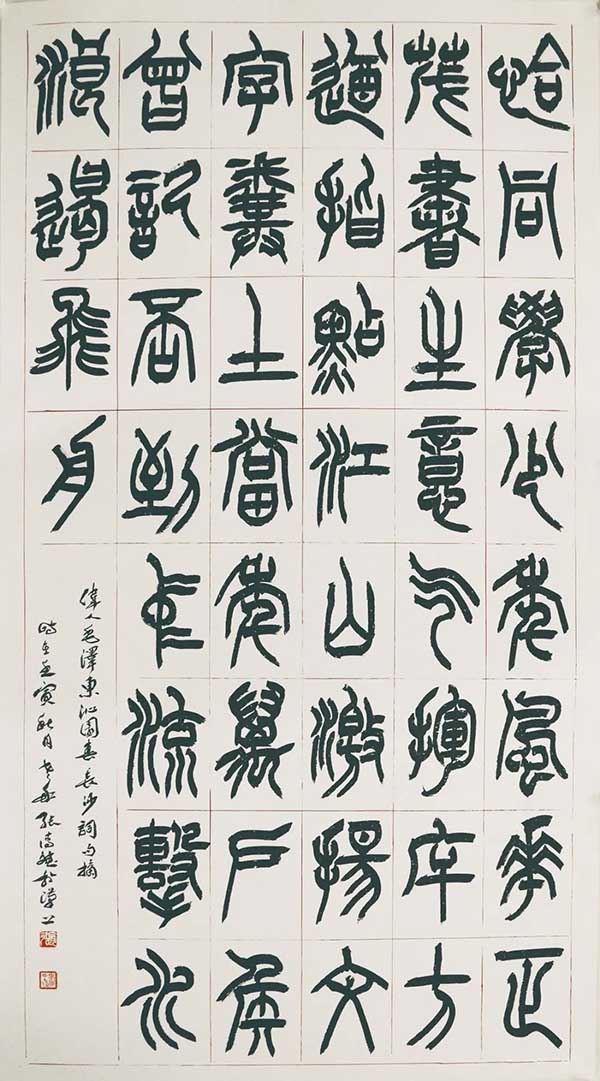 恰同學少年風華正
茂書生意气揮斥方
遒指點江山激揚文
字糞土當年萬戶侯
曾記否到中流擊水
浪遏飛舟
偉人毛澤東沁園春長沙詞句摘
時在壬寅秋月張於漢上